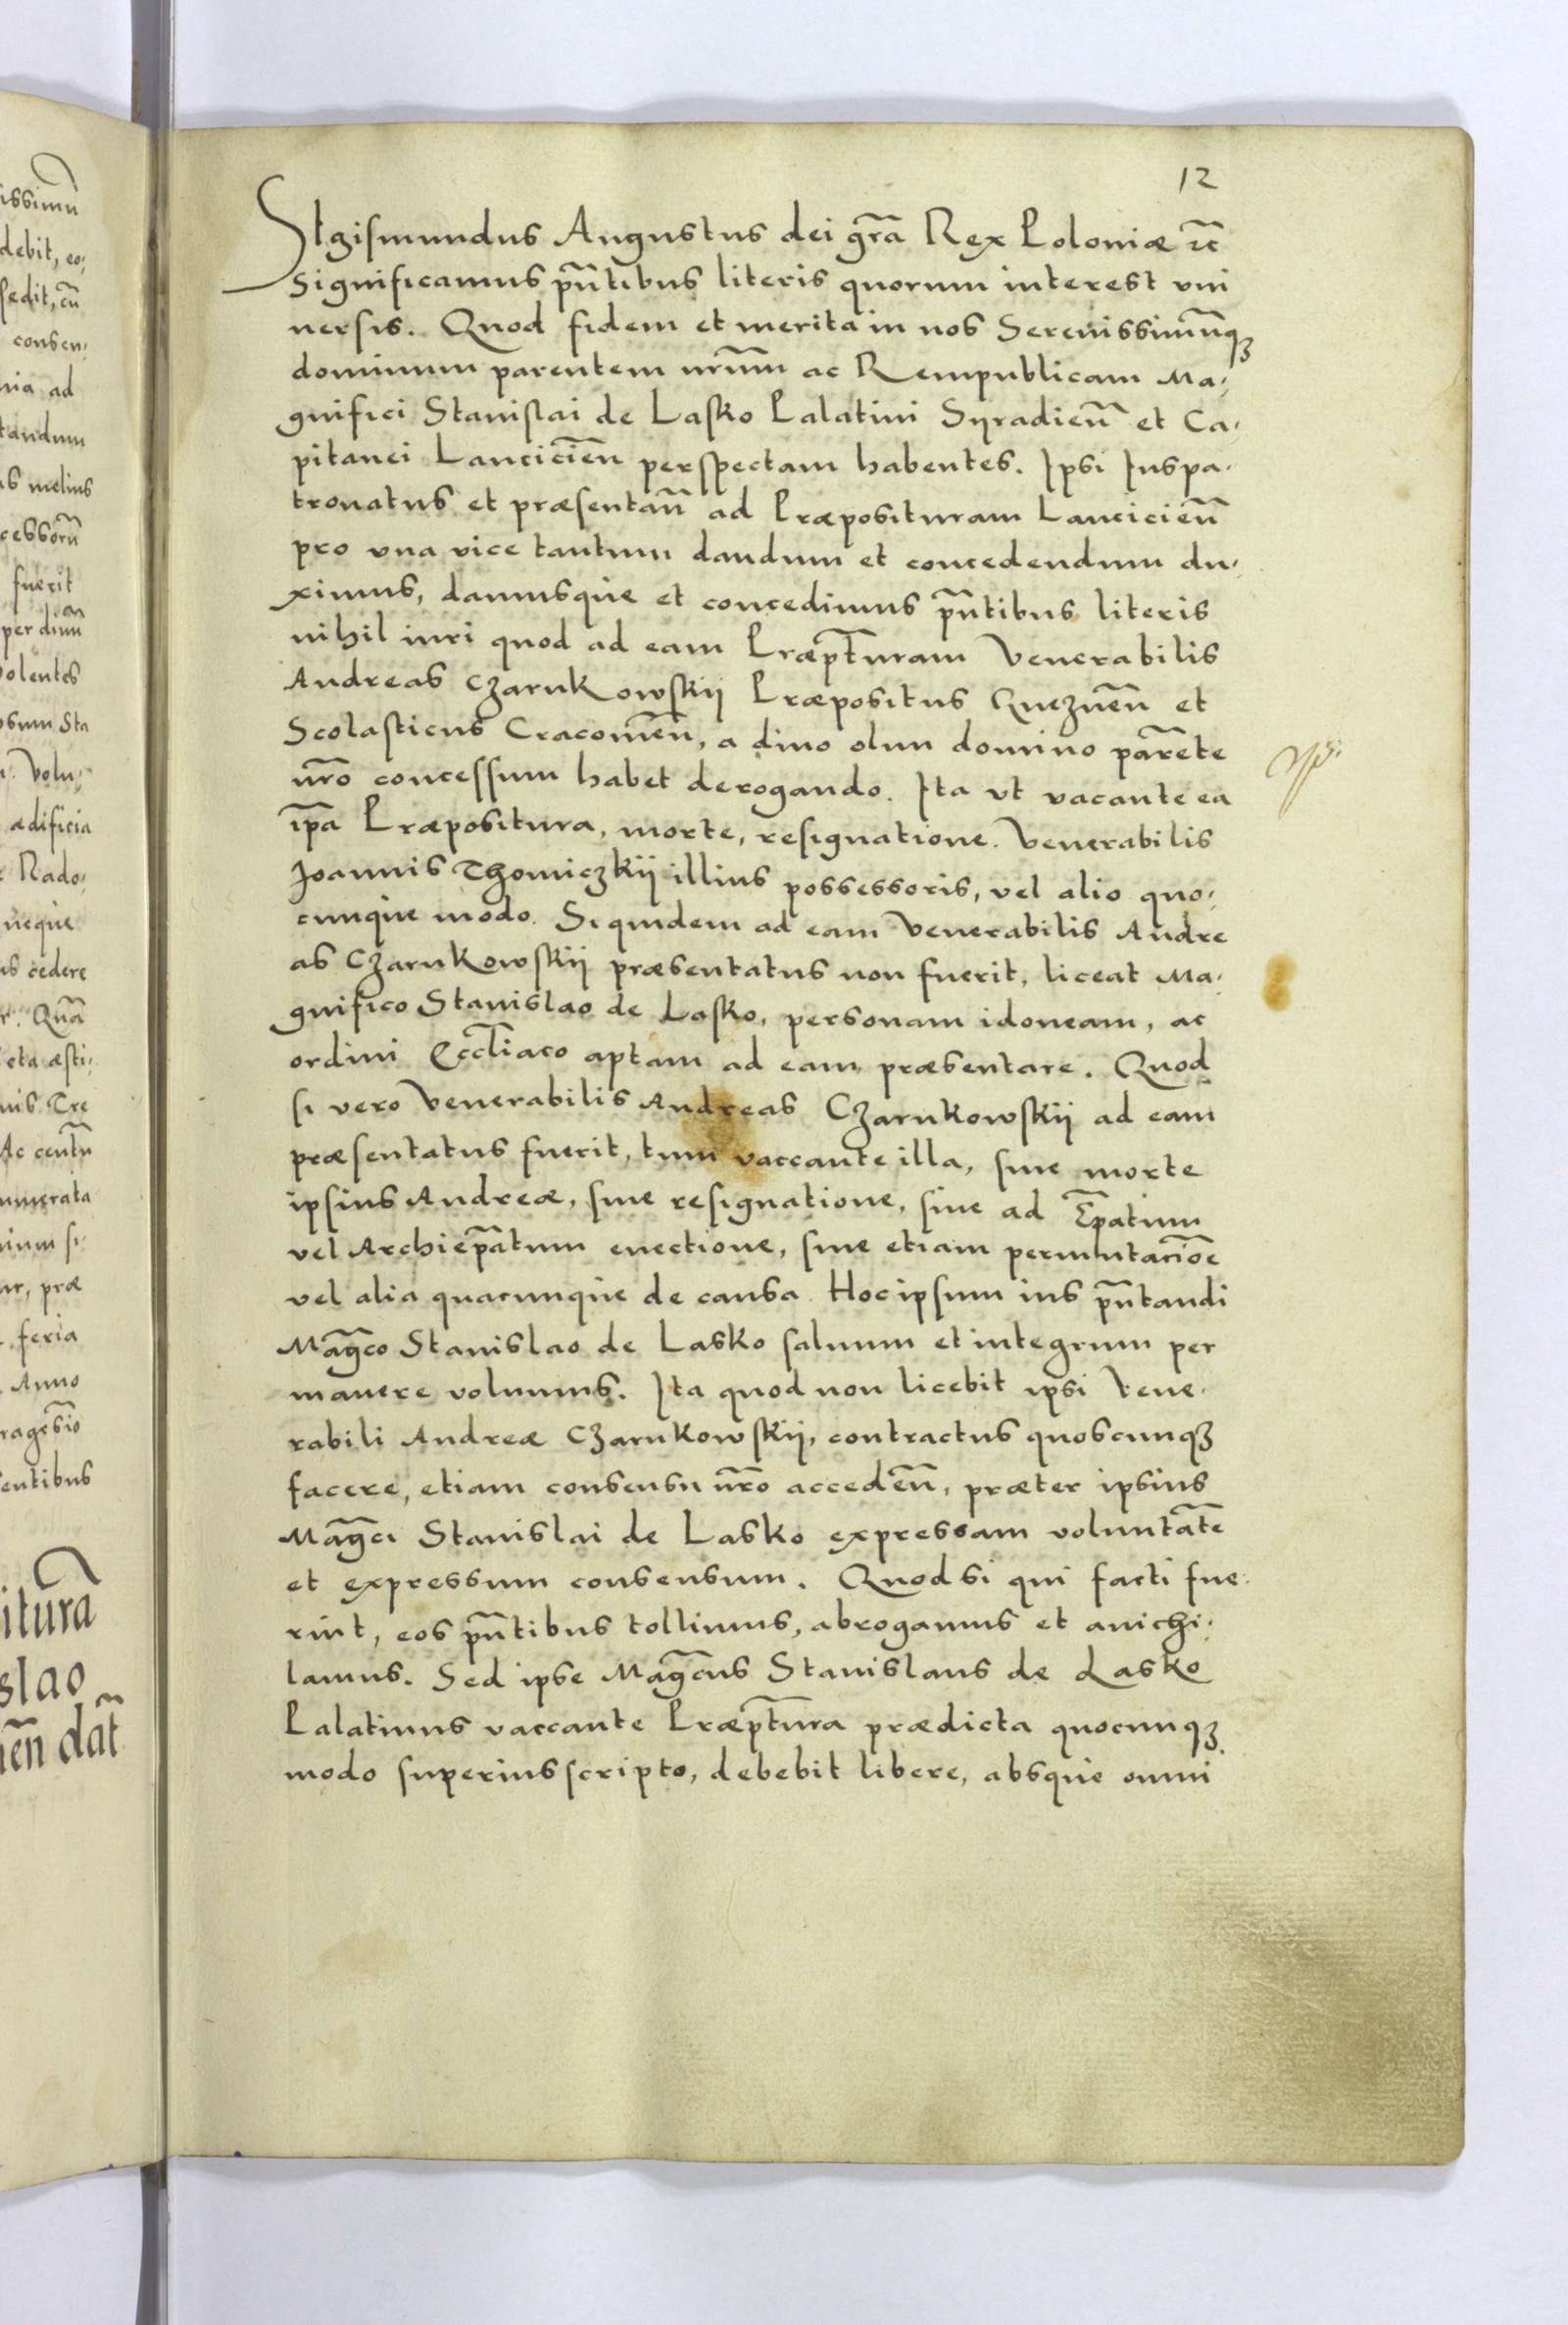 12
Sigismundus Augustus dei gr̃a Rex Poloniæ ꝛc̃
Significamus pñtibus literis quorum interest vni
uersis. Quod fidem et merita in nos Serenissimũqꝫ
dominum parentem nr̃um ac Rempublicam Ma-
gnifici Stanislai de Lasko Palatini Syradieñ et Ca-
pitanei Lancicień perspectam habentes. Ipsi Iuspa-
tronatus et præsentañ ad Præposituram Lancicieñ
pro vna vice tantum dandum et concedendum du-
ximus, damusque et concedimus pñtibus literis
nihil iuri quod ad eam Præpt̃uram Venerabilis
Andreas Czarnkowskij Præpositus Gnezneñ et
Scolasticus Cracouieñ, a diuo olim domino parẽte
nr̃o concessum habet derogando. Ita vt vacante ea
ip̃a Præpositura, morte, resignatione. Venerabilis
Joannis Thomiczkij illius possessoris, vel alio quo-
cunque modo. Siquidem ad eam Venerabilis Andre
as Czarnkowskij præsentatus non fuerit, liceat Ma-
gnifico Stanislao de Lasko, personam idoneam, ac
ordini Eccl̃iaco aptam ad eam præsentare. Quod
si vero Venerabilis Andreas Czarnkowskij ad eam
præsentatus fuerit, tum vaccante illa, siue morte
ipsius Andreæ, siue resignatione, siue ad Ep̃atum
vel Archiep̃atum euectione, siue etiam permutaciõe
vel alia quacunque de causa. Hoc ipsum ius pñtandi
Mag̃co Stanislao de Lasko saluum et integrum per
manere volumus. Ita quod non licebit ipsi Vene-
rabili Andreæ Czarnkowskij, contractus quoscunqꝫ
facere, etiam consensu nr̃o accedeñ, præter ipsius
Mag̃ci Stanislai de Lasko expressam voluntatẽ
et expressum consensum. Quod si qui facti fue-
rint, eos pñtibus tollimus, abrogamus et anichi-
lamus. Sed ipse Mag̃cus Stanislaus de Lasko
Palatinus vaccante Præpt̃ura prædicta quocunqꝫ
modo superius scripto, debebit libere, absque omni